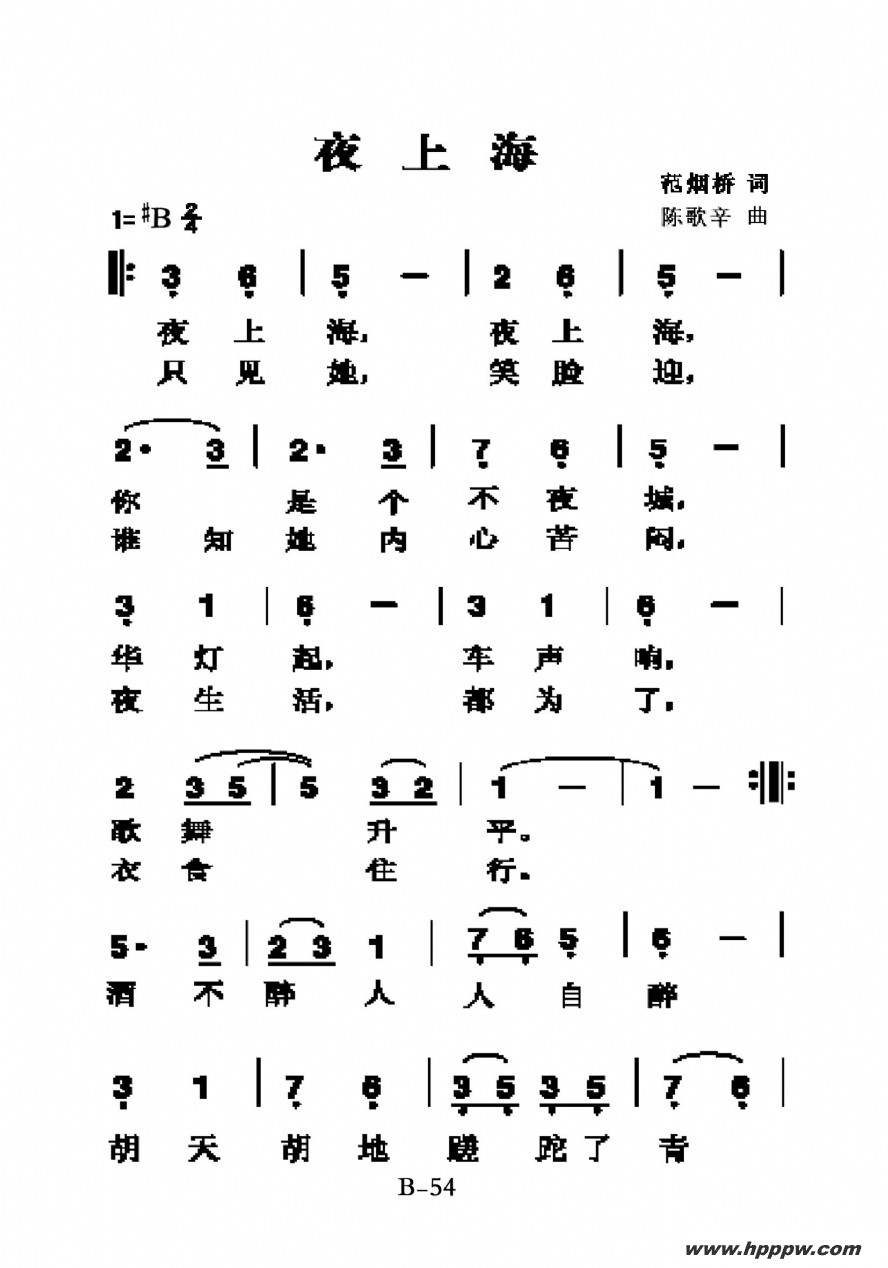 夜上海
范烟桥 词
1=♯B 2/4
陈歌辛 曲
3 6 | 5 — | 2 6 | 5 — |
夜上海, 夜上海,
只见她, 笑脸迎,
2· 3 | 2· 3 | 7 6 | 5 — |
你 是个不夜城,
谁知她内心苦闷,
3 1 | 6 — | 3 1 | 6 — |
华灯起, 车声响,
夜生活, 都为了,
2 3 5 | 5 3 2 | 1 — | 1 —
歌舞 升平。
衣食 住行。
5· 3 | 2 3 1 | 7 6 5 | 6 — |
酒不醉人人自醉
3 1 | 7 6 | 3 5 3 5 | 7 6 |
胡天胡地蹉跎了青
B-54
www.hpppw.com